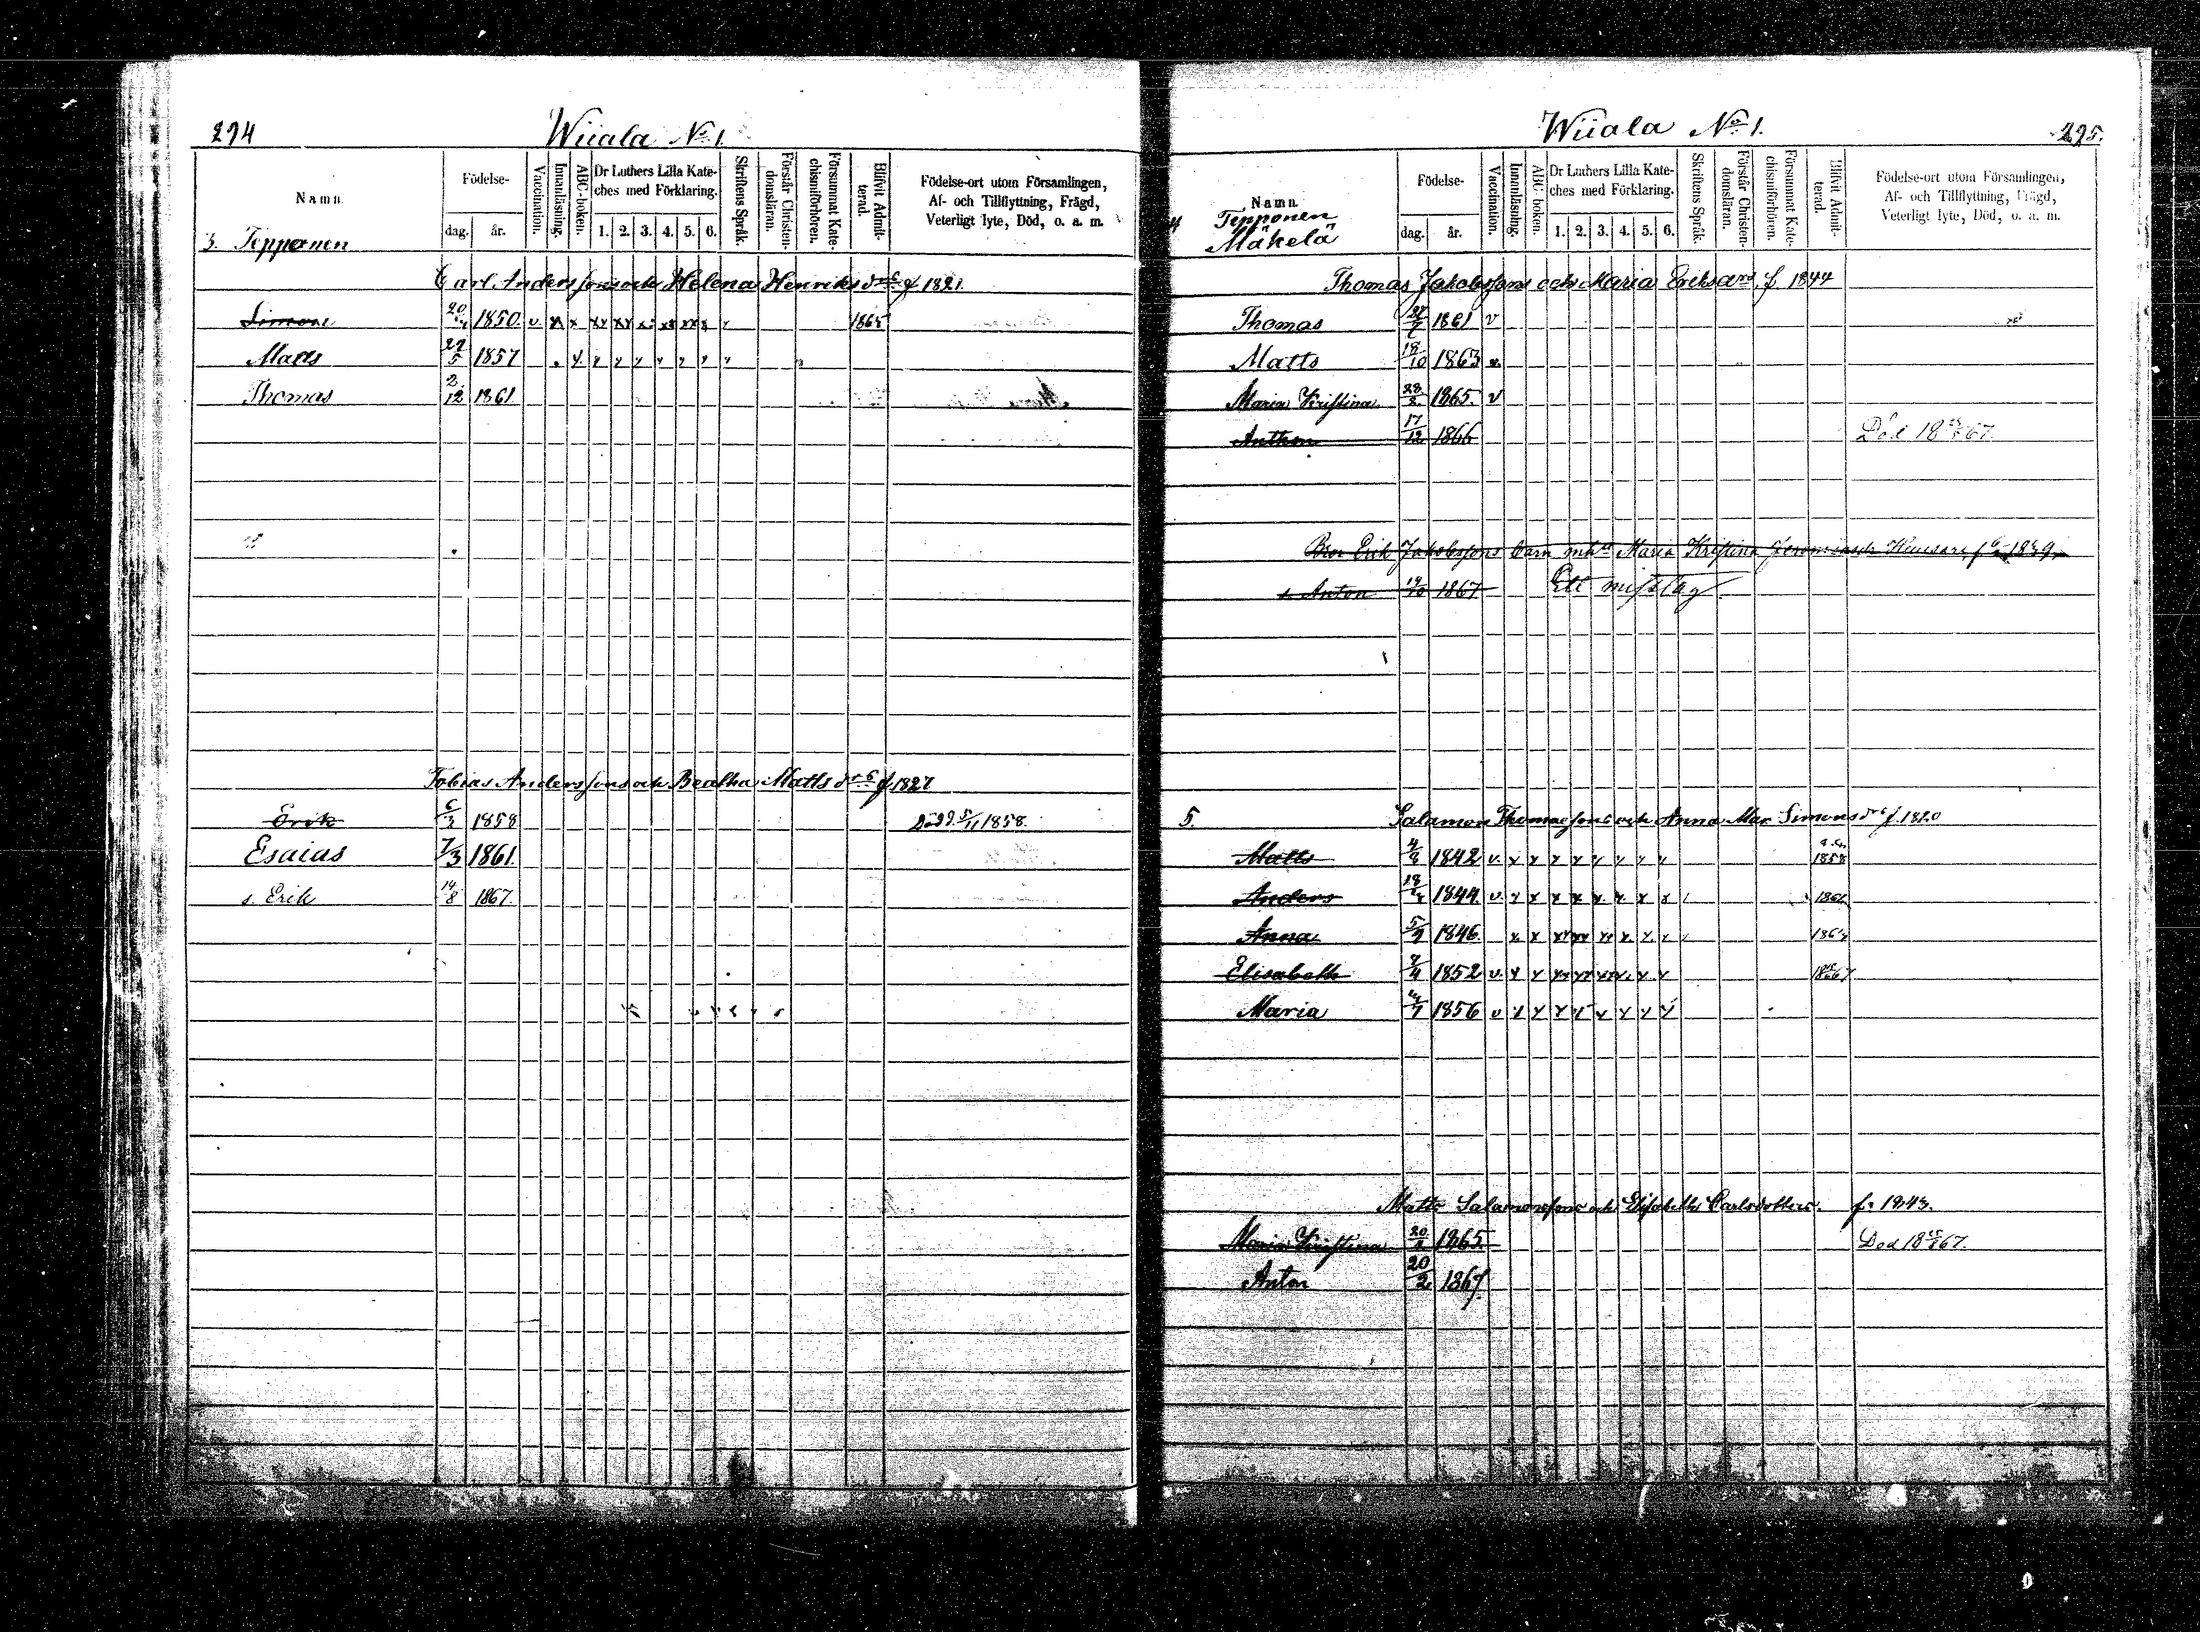 294
Wiiala No 1.
Namn.
Födelse-
dag.
år.
Vaccination.
Innanläsning.
ABC-boken.
Dr Luthers Lilla Kate-
ches med Förklaring.
1. 2. 3. 4. 5. 6.
Skriftens Språk.
Förstår Christen-
domsläran.
Försummat Kate-
chismiförhören.
Blifvit Admit-
terad.
Födelse-ort utom Församlingen,
Af- och Tillflyttning, Frägd,
Veterligt lyte, Död, o. a. m.
3. Tepponen
Carl Anderssons och Helena Henriksdrs f 1821
Simon 1850 v
Matts 5 1857
Thomas 2/12 1861
Tobias Anderssons och Beatha Matts drs f. 1827
Erik 6/3 1858 Död 5/11 1858.
Esaias 7/3 1861.
s. Erik 14/8 1867.
Wiiala No 1.
295.
Namn.
Födelse-
dag.
år.
Vaccination.
Innanläsning.
ABC-boken.
Dr Luthers Lilla Kate-
ches med Förklaring.
1. 2. 3. 4. 5. 6.
Skriftens Språk.
Förstår Christen-
domsläran.
Försummat Kate-
chismiförhören.
Blifvit Admit-
terad.
Födelse-ort utom Församlingen,
Af- och Tillflyttning, Frägd,
Veterligt lyte, Död, o. a. m.
4 Tepponen
Mäkelä
Thomas Jakobssons och Maria Eriksdrs f. 1844
Thomas 1861 v
Matts 18/10 1863
Maria Kristina 28/2 1865. v
Anthon 17/12 1866 Död 18 67.
Bror Erik Jakobssons barn m. h. Maria Kristina f 1839
s. Anton 19/10 1867 Ett misstag
5. Salamon Thomassons och Anna Mar. Simonsdrs f. 1820
Matts 4/8 1842 v. 1858
Anders 1844 v. 1861
Anna 5/9 1846
Elisabeth 1852 v.
Maria 1856 v
Matts Salamonssons och Elisabeth Carlsdotters f. 1843.
Maria Kristina 1865. Död 18 67.
Anton 20/2 1867.